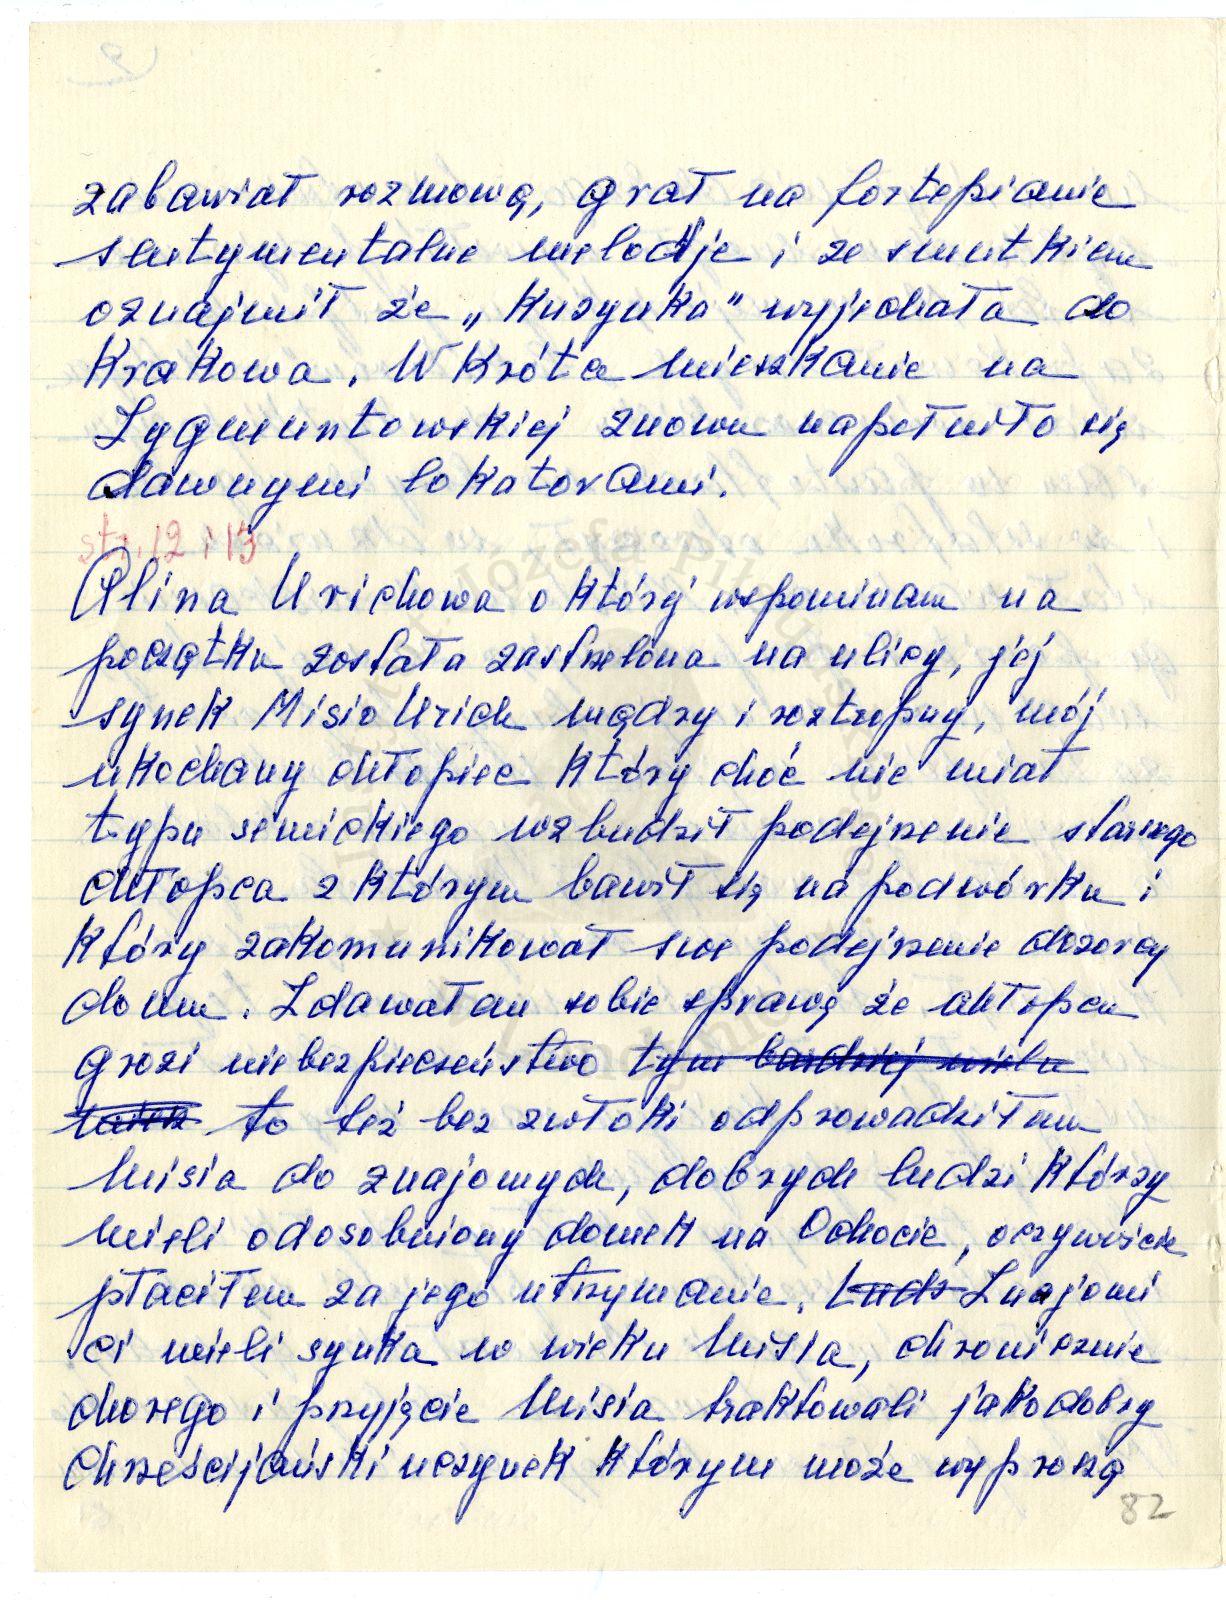 zabawiał rozmową, grał na fortepianie
sentymentalne melodje i ze smutkiem
oznajmił że „kuzynka" wyjechała do
Krakowa. Wkróte mieszkanie na
Zygmuntowskiej znowu napełniło się
dawnymi lokatorami.
str. 12 i 13
Alina Urichowa o której wspominam na
początku została zastrzelona na ulicy, jej
synek Misio Urich mądry i roztropny, mój
ukochany chłopiec który choć nie miał
typu semickiego wzbudził podejrzenie starszego
chłopca z którym bawił się na podwórku i
który zakomunikował swe podejrzenie dozorcy
domu. Zdawałam sobie sprawę że chłopcu
grozi niebezpieczeństwo tym bardziej wielu
to też bez zwłoki odprowadziłam
Misia do znajomych, dobrych ludzi którzy
mieli odosobniony domek na Ochocie, oczywiście
płaciłem za jego utrzymanie. Ludz Znajomi
ci mieli synka w wieku Misia, chronicznie
chorego i przyjęcie Misia traktowali jako dobry
chrześcijański uczynek którym może wyproszą
82